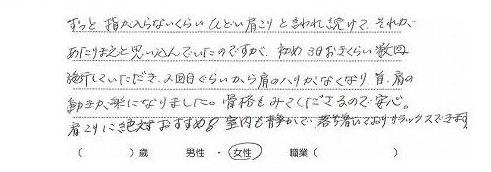 ずっと指が入らないくらいひどい肩こりと言われ続けて、それが、
あたりまえと思い込んでいたのですが、初め3日おきくらい数回
施術していただき、2回目ぐらいから肩のハリがなくなり首、肩の
動きが楽になりました。骨格もみてくださるので安心。
肩こりに絶対おすすめ!!室内も静かで、落ち着いておりリラックスできます
( )歳 男性 ・ 女性 職業( )